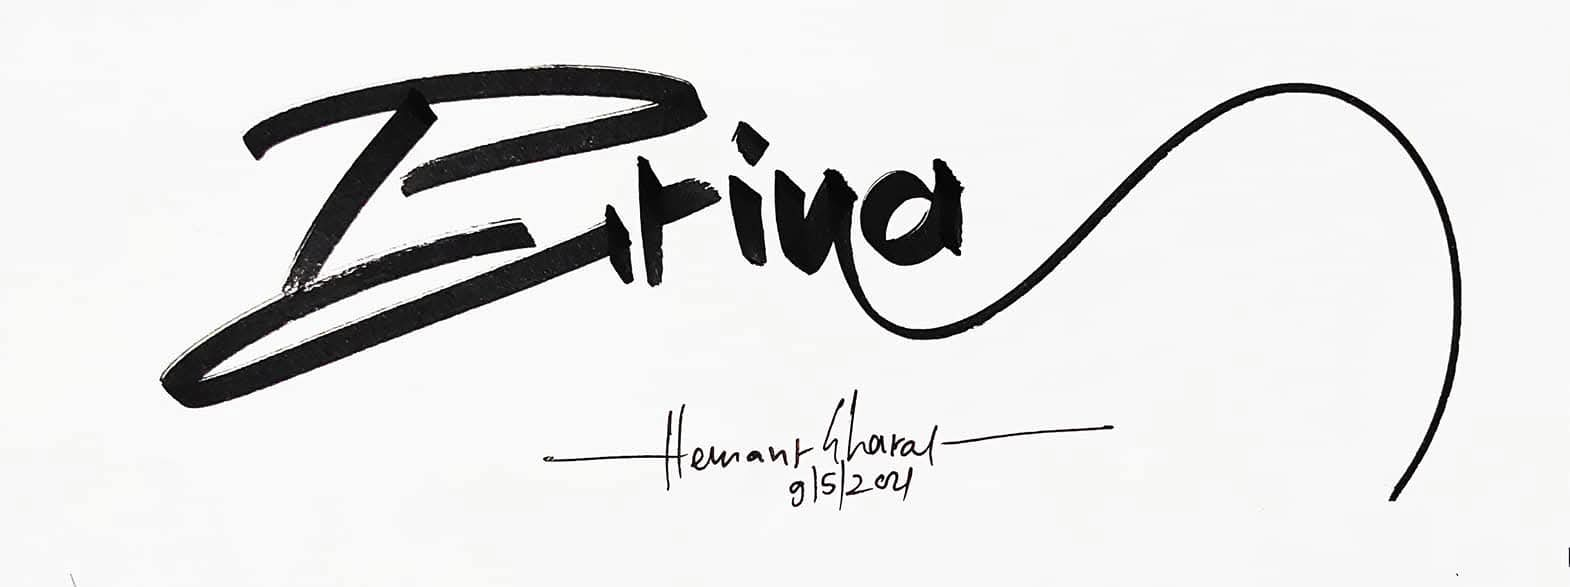 Erina
Hemant Gharat
9/5/2021